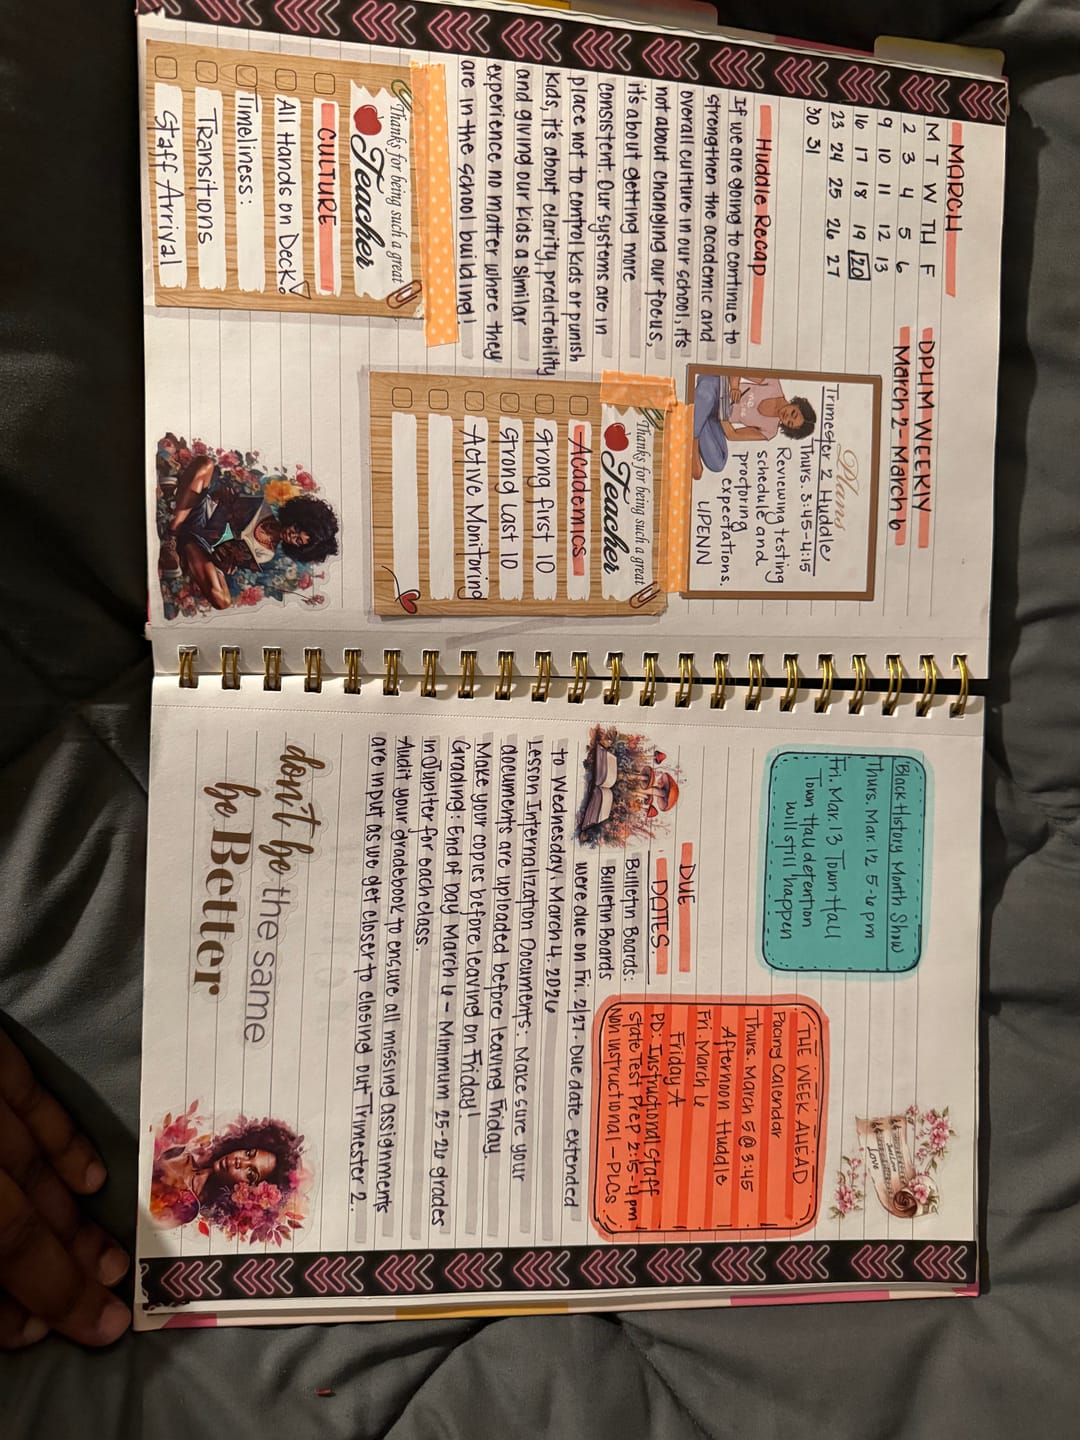 MARCH
M T W TH F
2 3 4 5 6
9 10 11 12 13
16 17 18 19 20
23 24 25 26 27
30 31
DPHM WEEKLY
March 2 - March 6
Plans
Trimester 2 Huddle
Thurs. 3:45-4:15
Reviewing testing
schedule and
proctoring
expectations.
UPENN
Huddle Recap
If we are going to continue to
strengthen the academic and
overall culture in our school, it's
not about changing our focus,
it's about getting more
consistent. Our systems are in
place not to control kids or punish
kids, it's about clarity, predictability
and giving our kids a similar
experience no matter where they
are in the school building!
Thanks for being such a great
Teacher
CULTURE
All Hands on Deck!
Timeliness:
Transitions
Staff Arrival
Thanks for being such a great
Teacher
Academics
Strong first 10
Strong Last 10
Active Monitoring
Black History Month Show
Thurs. Mar. 12 5-6 pm
Fri. Mar. 13 Town Hall
Town Hall detention
will still happen
Love
THE WEEK AHEAD
Pacing Calendar
Thurs. March 5 @ 3:45
Afternoon Huddle
Fri. March 6
Friday A
PD: Instructional Staff
State Test Prep 2:15-4pm
Non Instructional - PLCs
DUE
DATES:
Bulletin Boards:
Bulletin Boards
were due on Fri. 2/27. Due date extended
to Wednesday, March 4, 2026
Lesson Internalization Documents: Make sure your
documents are uploaded before leaving Friday.
Make your copies before leaving on Friday!
Grading: End of Day March 6 - Minimum 25-26 grades
in Jupiter for each class.
Audit your gradebook to ensure all missing assignments
are input as we get closer to closing out Trimester 2.
don't be the same
be Better